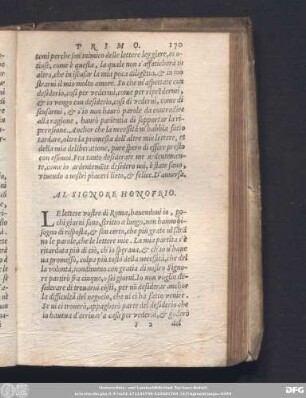 PRIMO. 170
temi perche son nimico delle lettere leggiere, et o-
tiose, come è questa, la quale non s'affaticherà in
altro, che in iscusar la mia poca diligẽtia, & in mo
strarvi il mio molto amore. So che mi aspettate con
desiderio, così per vedermi, come per ripredermi;
& io vengo con desiderio, così di vedervi, come di
scusarmi, & s'io non havrò parole da contradire
alla ragione, havrò patientia di sopportar la ri-
prensione. Anchor che la necessità m'habbia fatto
tardare, oltre la promessa dell'altre mie lettere, et
della mia deliberatione, pure spero di esser presto
con essovoi. Fra tanto desiderate me ardentemen-
te, come io ardentemẽte desidero voi, e state sano,
vivendo a vostri piaceri lieto, & felice. D'anversa.
AL SIGNORE HONOFRIO.
LE lettere vostre di Roma, havendomi io, po-
chi giorni sono, scritto a lungo, non hanno bi
sogno di risposta, & son certo, che più grate vi sarã
no le parole, che le lettere mie. La mia partita s'è
ritardata più di ciò, ch'io sperava, & che io havea
promesso, colpa più tosto della necessità, che del
la volontà, nondimeno con gratia di nostro Signo-
re partirò fra cinque, o sei giorni. Io non voglio de-
siderare di trovarvi costì, per nõ desiderar anchor
la difficultà del negocio, che ni ci ha fatto venire.
Se vi ci troverò, appagherò parte del desiderio che
io haveva d'arrivar' a casa per vedervi, & goderò